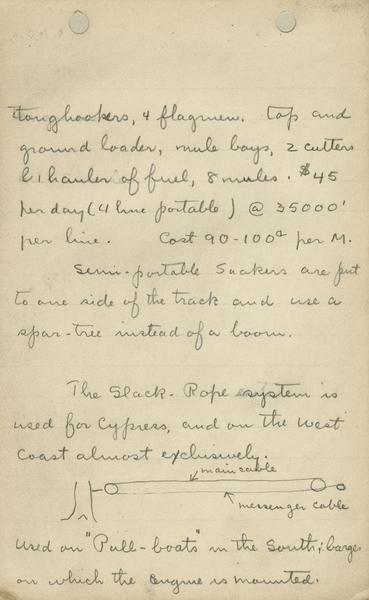 tonghookers, 4 flagmen. top and
ground loader, mule boys, 2 cutters
& 1 hauler of fuel, 8 mules. $45
per day (4 line portable) @ 35000'
per line. Cost 90-100¢ per M.
Semi-portable Snakers are put
to one side of the track and use a
spar-tree instead of a boom.
The Slack-Rope system is
used for Cypress, and on the West
Coast almost exclusively.
main cable
messenger cable
used on "Pull-boats" in the South; barges
on which the engine is mounted.